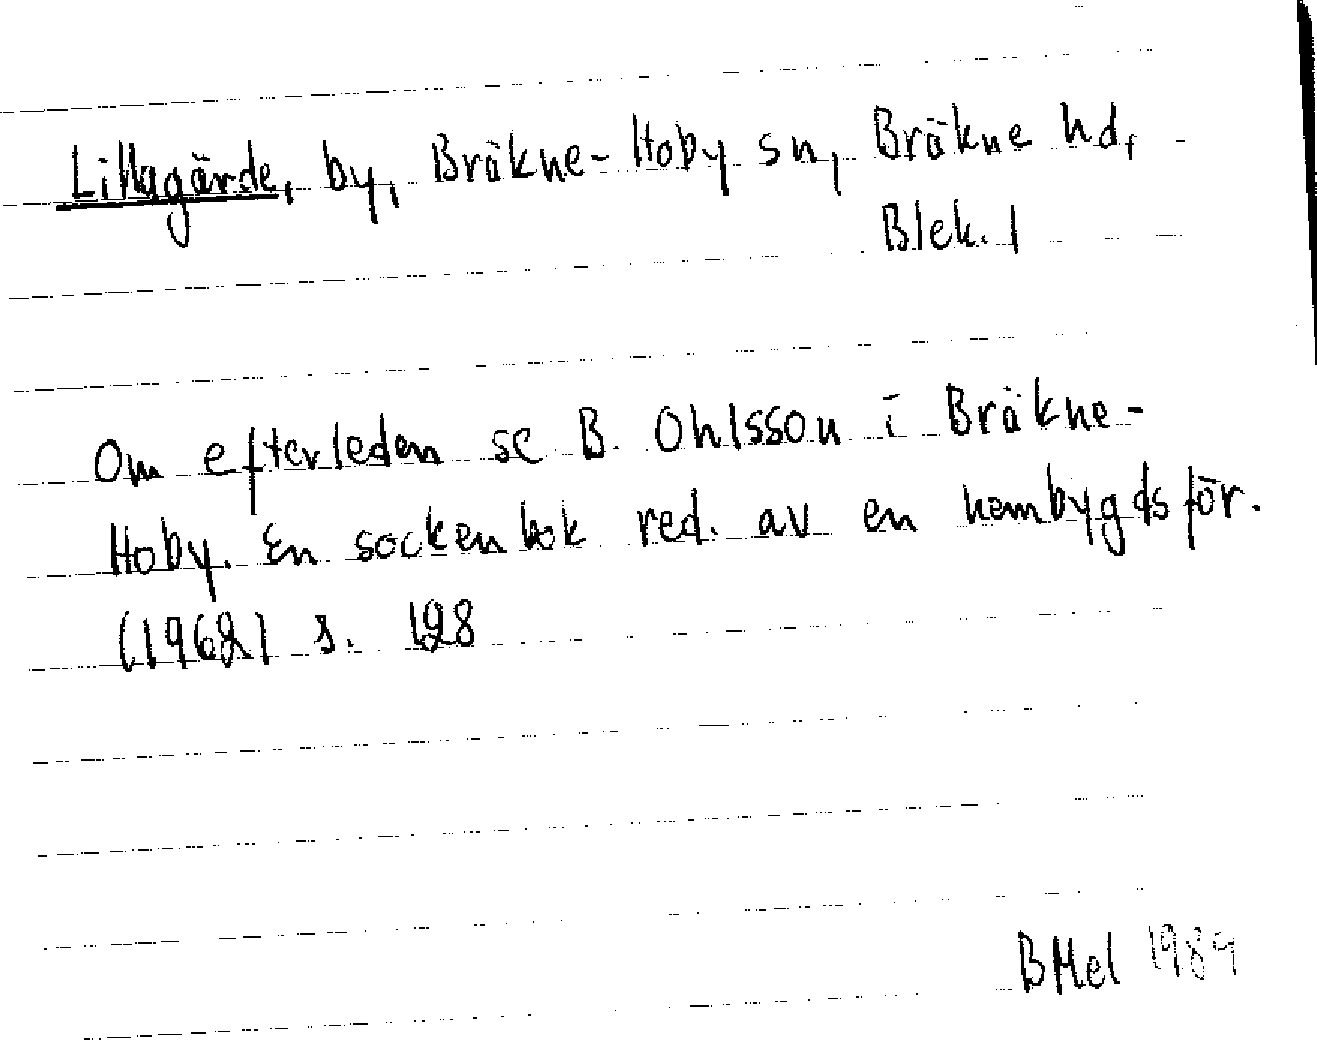 Lillagärde, by, Bräkne-Hoby sn, Bräkne hd,
Blek. l
Om efterleden se B. Ohlsson i Bräkne-
Hoby. En sockenbok red. av en hembygdsför.
(1962) s. 128
BHel 1989